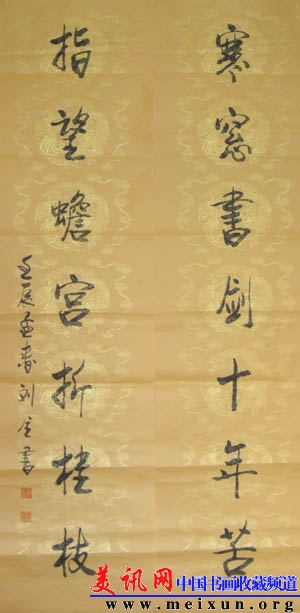 寒窓書劍十年苦
指望蟾宮折桂枝
壬辰孟春刘全書
美讯网
中国书画收藏频道
www.meixun.org